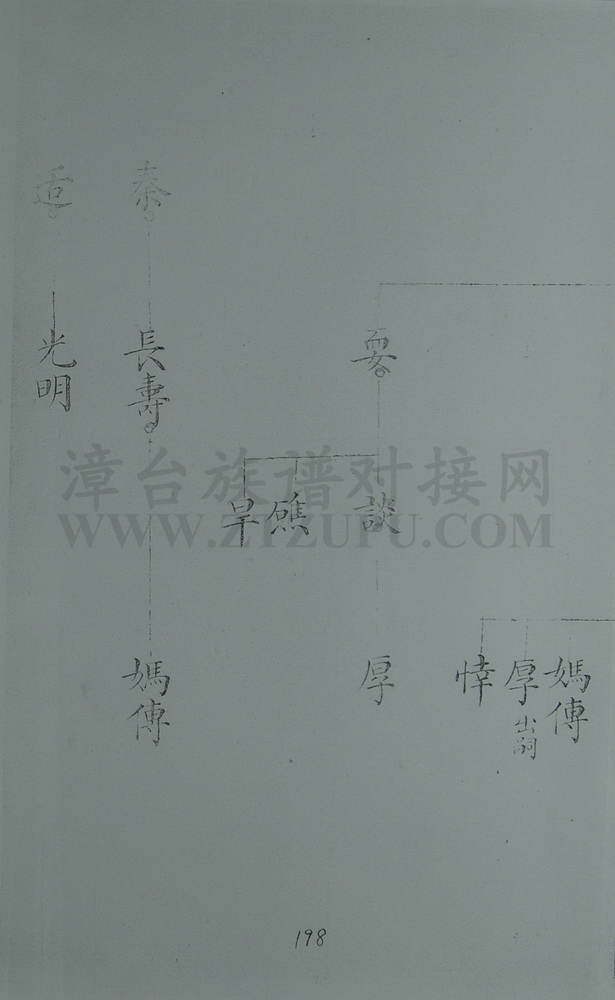 秦
适
耍
長壽
光明
漳台族谱对接网
WWW.ZTZUPU.COM
談
旱
媽傳
厚 出嗣
悻
厚
媽傳
198